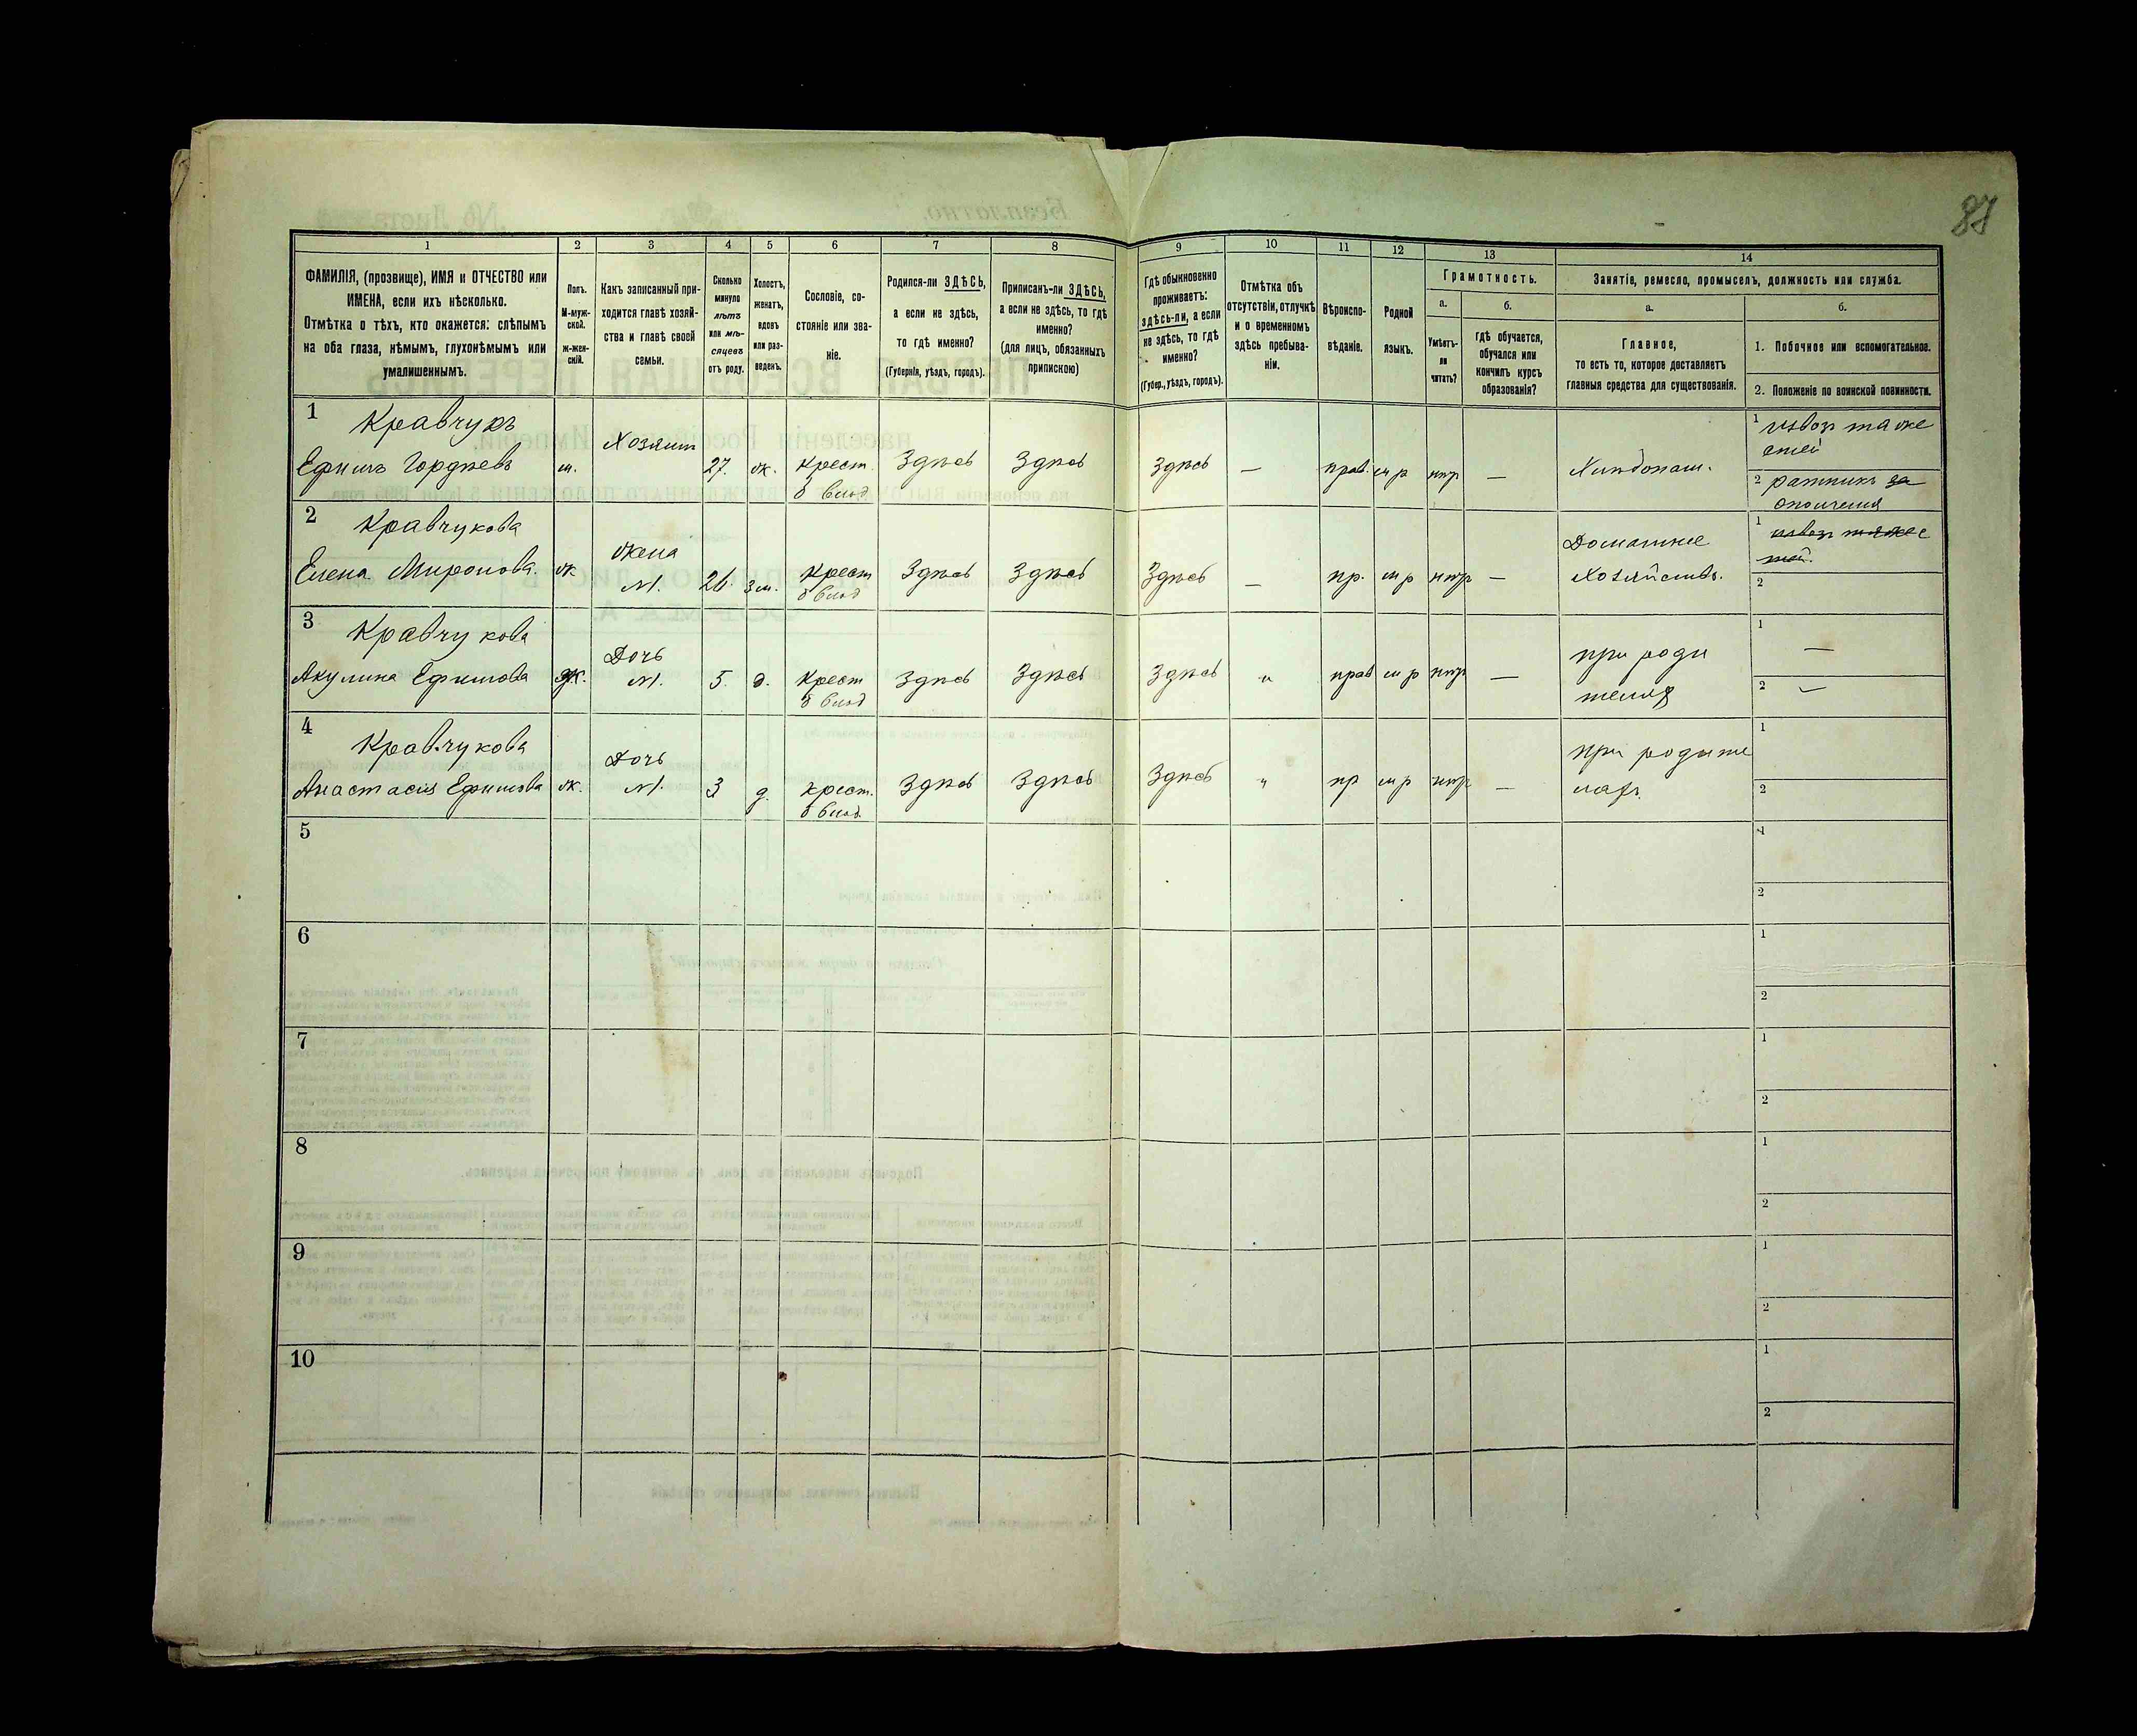 87
1 2 3 4 5 6 7 8 9 10 11 12 13 14
ФАМИЛІЯ, (прозвище), ИМЯ и ОТЧЕСТВО или
ИМЕНА, если ихъ нѣсколько.
Отмѣтка о тѣхъ, кто окажется: слѣпымъ
на оба глаза, нѣмымъ, глухонѣмымъ или
умалишеннымъ.
Полъ.
М-муж-
ской.
Ж-жен-
скій.
Какъ записанный при-
ходится главѣ хозяй-
ства и главѣ своей
семьи.
Сколько
минуло
лѣтъ
или мѣ-
сяцевъ
отъ роду.
Холостъ,
женатъ,
вдовъ
или раз-
веденъ.
Сословіе, со-
стояніе или зва-
ніе.
Родился-ли ЗДѢСЬ,
а если не здѣсь,
то гдѣ именно?
(Губернія, уѣздъ, городъ).
Приписанъ-ли ЗДѢСЬ,
а если не здѣсь, то гдѣ
именно?
(для лицъ, обязанныхъ
припискою)
Гдѣ обыкновенно
проживаетъ:
здѣсь-ли, а если
не здѣсь, то гдѣ
именно?
(Губер., уѣздъ, городъ).
Отмѣтка объ
отсутствіи, отлучкѣ
и о временномъ
здѣсь пребыва-
ніи.
Вѣроиспо-
вѣданіе.
Родной
языкъ.
Грамотность.
а.
Умѣетъ-
ли
читать?
б.
гдѣ обучается,
обучался или
кончилъ курсъ
образованія?
Занятіе, ремесло, промыселъ, должность или служба.
а.
Главное,
то есть то, которое доставляетъ
главныя средства для существованія.
б.
1. Побочное или вспомогательное.
2. Положеніе по воинской повинности.
1 Кравчукъ
Ефимъ Гордѣевъ м. Хозяин 27. ж. Крест. Здѣсь Здѣсь Здѣсь — прав. м р нѣр — Хлѣбопаш.
б влад
1 извоз тяже
стей
2 ратникъ за
ополченія
2 Кравчукова
Елена Миронова. ж жена 26 зм. Крест Здѣсь Здѣсь Здѣсь — пр. м р нѣр — Домашнее
м. б влад Хозяйство.
1 извоз тяжес
тей.
2
3 Кравчукова
Акулина Ефимова ж. Дочь 5. д. Крест Здѣсь Здѣсь Здѣсь " прав м р нѣр — при роди
м. б влад теляхъ
1 —
2 —
4 Кравчукова
Анастасія Ефимова ж. Дочь 3 д. крест. Здѣсь Здѣсь Здѣсь " пр м р нѣр — при родите
м. б влад. ляхъ.
1
2
5
1
2
6
1
2
7
1
2
8
1
2
9
1
2
10
1
2